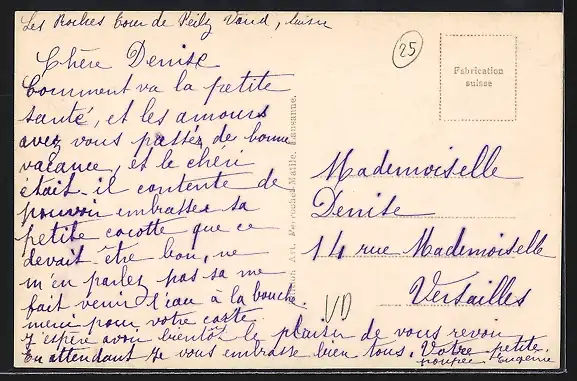 Les Roches Tour de Peilz Vaud, suisse
Chère Denise
Comment va la petite
santé, et les amours
avez vous passés de bonne
vacance, et le chéri
était-il contente de
pouvoir embrasser sa
petite cocotte que ce
devait être bon, ne
m'en parlez pas sa me
fait venir l'eau à la bouche.
merci pour votre carte
J'espère avoir bientôt le plaisir de vous revoir
En attendant je vous embrasse bien tous. Votre petite
poupée Eugénie
25
Fabrication
suisse
Art. Perrochet-Matile, Lausanne.
Mademoiselle
Denise
14 rue Mademoiselle
Versailles
VD